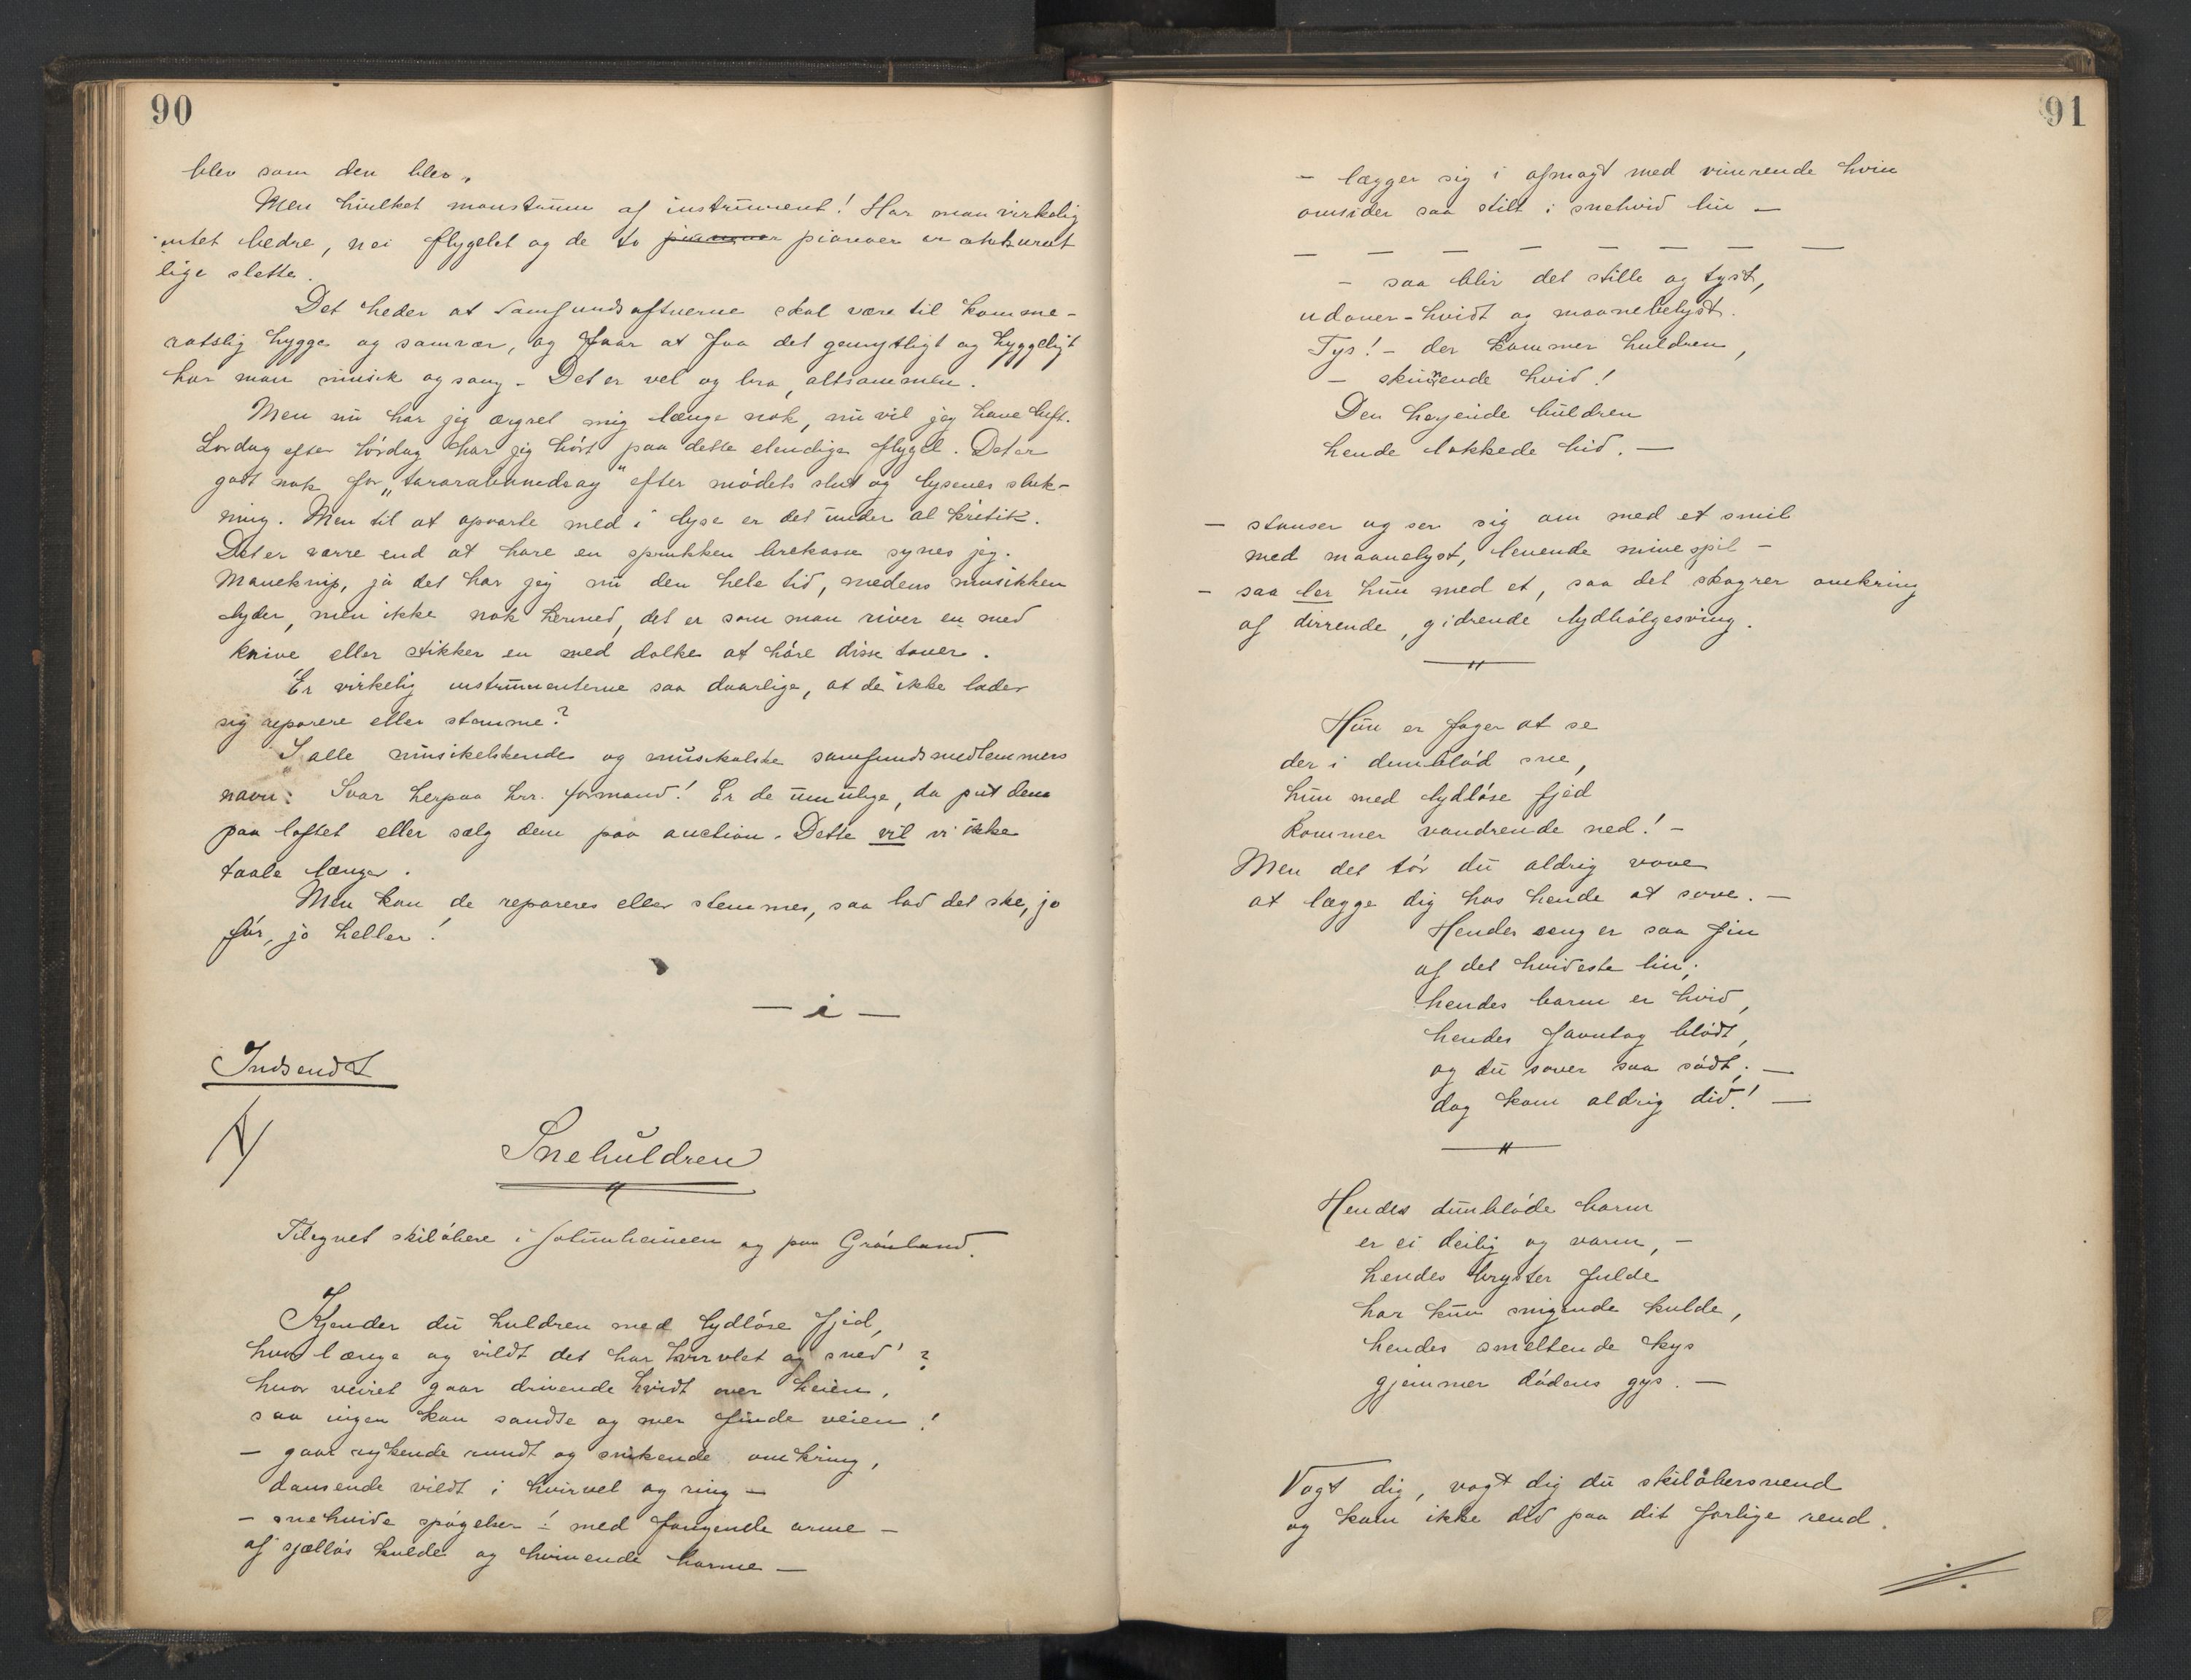 90
blev som den blev.
Men hvilket monstrum af instrument! Har man virkelig
intet bedre, nei flygelet og de to pianoer er akkurat
lige slette.
Det heder at Samfundsaftnerne skal være til kamme-
ratslig hygge og samvær, og for at faa det gemytligt og hyggeligt
har man musik og sang. Det er vel og bra, altsammen.
Men nu har jeg ærgret mig længe nok, nu vil jeg have luft.
Lørdag efter lørdag har jeg hørt paa dette elendige flygel. Det er
godt nok for „tararabumdeay" efter mødets slut og lysenes sluk-
ning. Men til at opvarte med i lyse er det under al kritik.
Det er værre end at høre en sprukken brekasse synes jeg.
Maveknip, ja det har jeg nu den hele tid, medens musikken
lyder, men ikke nok hermed, det er som man river en med
knive eller stikker en med dolke at høre disse toner.
Er virkelig instrumenterne saa daarlige, at de ikke lader
sig reparere eller stemme?
I alle musikelskende og musikalske samfundsmedlemmers
navn: Svar herpaa hrr. formand! Er de umulige, da put dem
paa loftet eller sælg dem paa auction. Dette vil vi ikke
taale længer.
Men kan de repareres eller stemmes, saa lad det ske, jo
før, jo heller!
— i —
Indsendt
Snehuldren
Tilegnet skiløbere i Jotunheimen og paa Grønland.
Kjender du huldren med lydløse fjed,
hvor længe og vildt det har hvirvlet og sned?
hvor veiret gaar drivende hvidt over heien,
saa ingen kan sandse og mer finde veien!
— gaar rykende rundt og snikende omkring,
dansende vildt i hvirvel og ring —
— snehvide spøgelser! med fangende arme —
af sjælløs kulde og hvinende harme —
91
— lægger sig i afmagt med vimrende hvin
omsider saa stilt i snehvid lin —
— — — — — — — —
— saa blir det stille og tyst,
udover-hvidt og maanebelyst.
Tys! — der kommer huldren,
— skinnende hvid!
Den høyende huldren
hende lokkede hid. —
— stanser og ser sig om med et smil
med maanelyst, levende minespil —
— saa ler hun med et, saa det skogrer omkring
af dirrende, gidrende lydbølgesving.
Hun er fager at se
der i dunblød sne,
hun med lydløse fjed
kommer vandrende ned! —
Men det tør du aldrig vove
at lægge dig hos hende at sove. —
Hendes seng er saa fin
af det hvideste lin;
hendes barm er hvid,
hendes favntag blødt,
og du sover saa sødt; —
dog kom aldrig did! —
Hendes dunbløde barm
er ei deilig og varm, —
hendes bryster fulde
har kun snigende kulde,
hendes smeltende kys
gjemmer dødens gys. —
Vogt dig, vogt dig du skiløbersvend
og kom ikke did paa dit farlige rend.